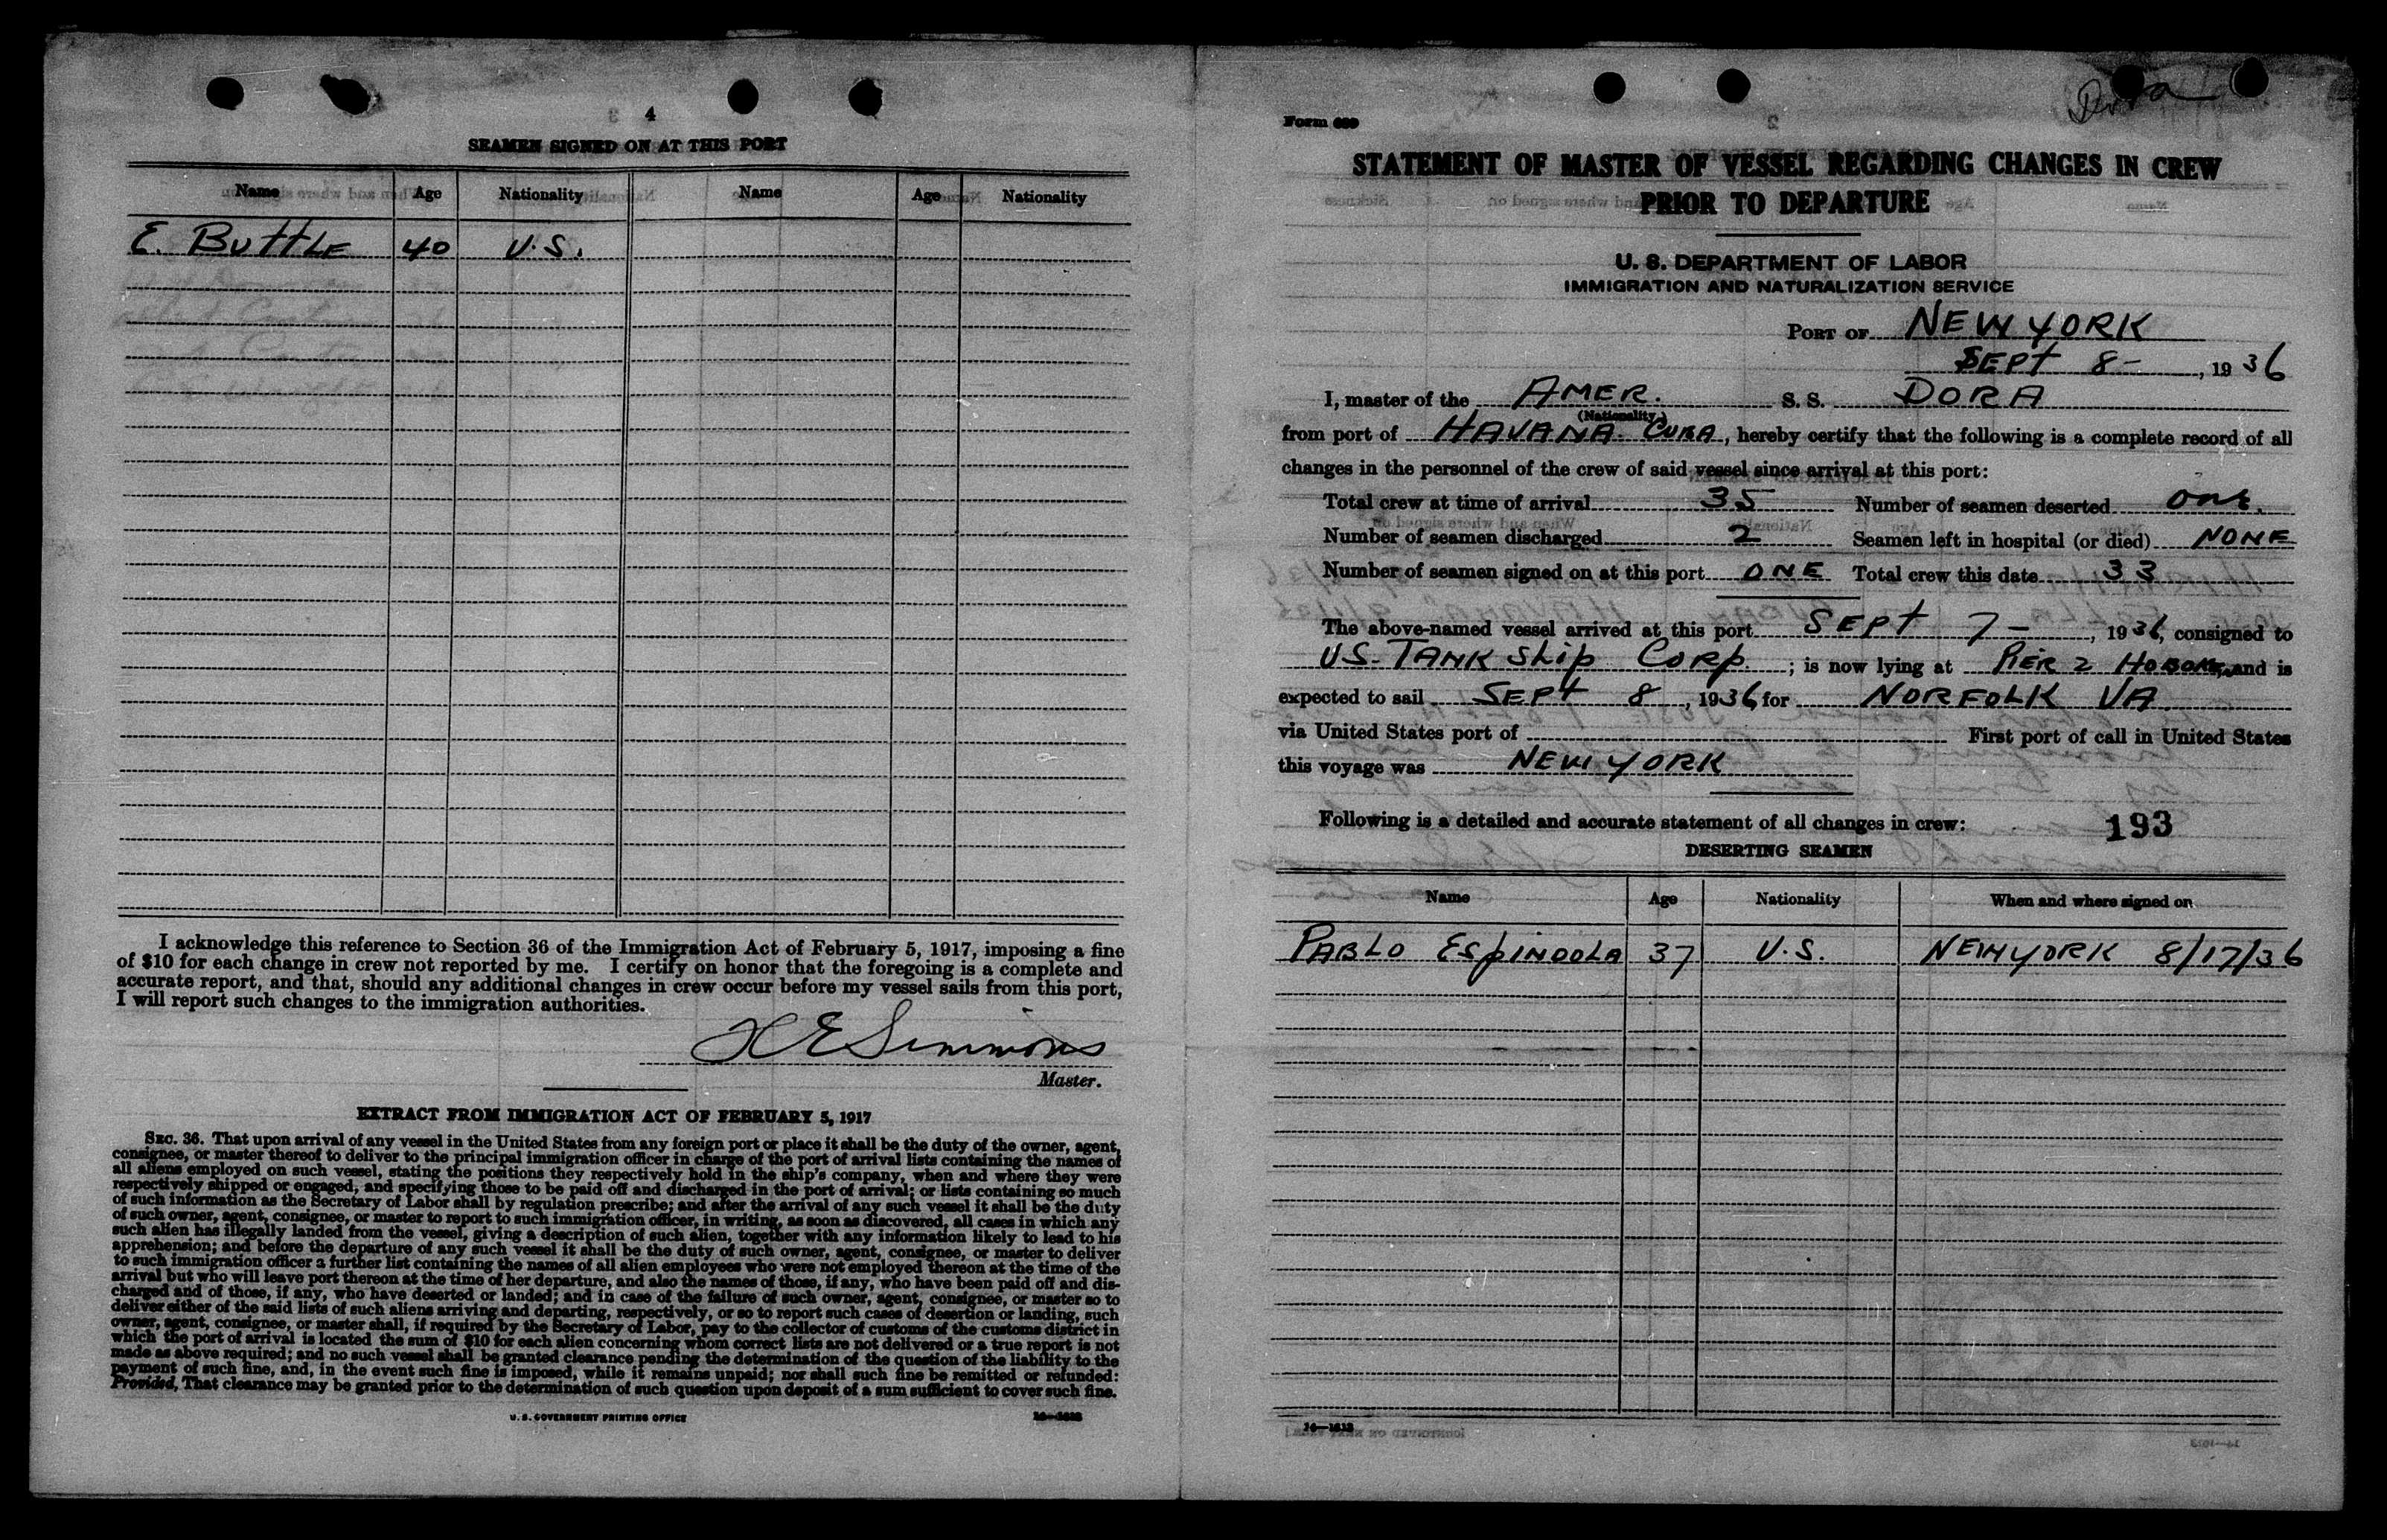 4
SEAMEN SIGNED ON AT THIS PORT
Name Age Nationality Name Age Nationality
E. BUTTLE 40 U.S.
I acknowledge this reference to Section 36 of the Immigration Act of February 5, 1917, imposing a fine
of $10 for each change in crew not reported by me. I certify on honor that the foregoing is a complete and
accurate report, and that, should any additional changes in crew occur before my vessel sails from this port,
I will report such changes to the immigration authorities.
H E Simmons
Master.
EXTRACT FROM IMMIGRATION ACT OF FEBRUARY 5, 1917
SEC. 36. That upon arrival of any vessel in the United States from any foreign port or place it shall be the duty of the owner, agent,
consignee, or master thereof to deliver to the principal immigration officer in charge of the port of arrival lists containing the names of
all aliens employed on such vessel, stating the positions they respectively hold in the ship's company, when and where they were
respectively shipped or engaged, and specifying those to be paid off and discharged in the port of arrival; or lists containing so much
of such information as the Secretary of Labor shall by regulation prescribe; and after the arrival of any such vessel it shall be the duty
of such owner, agent, consignee, or master to report to such immigration officer, in writing, as soon as discovered, all cases in which any
such alien has illegally landed from the vessel, giving a description of such alien, together with any information likely to lead to his
apprehension; and before the departure of any such vessel it shall be the duty of such owner, agent, consignee, or master to deliver
to such immigration officer a further list containing the names of all alien employees who were not employed thereon at the time of the
arrival but who will leave port thereon at the time of her departure, and also the names of those, if any, who have been paid off and dis-
charged and of those, if any, who have deserted or landed; and in case of the failure of such owner, agent, consignee, or master so to
deliver either of the said lists of such aliens arriving and departing, respectively, or so to report such cases of desertion or landing, such
owner, agent, consignee, or master shall, if required by the Secretary of Labor, pay to the collector of customs of the customs district in
which the port of arrival is located the sum of $10 for each alien concerning whom correct lists are not delivered or a true report is not
made as above required; and no such vessel shall be granted clearance pending the determination of the question of the liability to the
payment of such fine, and, in the event such fine is imposed, while it remains unpaid; nor shall such fine be remitted or refunded:
Provided, That clearance may be granted prior to the determination of such question upon deposit of a sum sufficient to cover such fine.
U. S. GOVERNMENT PRINTING OFFICE
Dora
Form 689
STATEMENT OF MASTER OF VESSEL REGARDING CHANGES IN CREW
PRIOR TO DEPARTURE
U. S. DEPARTMENT OF LABOR
IMMIGRATION AND NATURALIZATION SERVICE
PORT OF NEW YORK
SEPT 8 - , 1936
I, master of the AMER. S. S. DORA
(Nationality)
from port of HAVANA. CUBA, hereby certify that the following is a complete record of all
changes in the personnel of the crew of said vessel since arrival at this port:
Total crew at time of arrival 35 Number of seamen deserted one.
Number of seamen discharged 2 Seamen left in hospital (or died) NONE
Number of seamen signed on at this port ONE Total crew this date 33
The above-named vessel arrived at this port SEPT 7 - , 1936, consigned to
U.S. TANK Ship Corp. ; is now lying at PIER 2 HOBOKEN, and is
expected to sail SEPT 8 , 1936 for NORFOLK VA
via United States port of First port of call in United States
this voyage was NEW YORK
Following is a detailed and accurate statement of all changes in crew: 193
DESERTING SEAMEN
Name Age Nationality When and where signed on
PABLO ESPINDOLA 37 U.S. NEW YORK 8/17/36